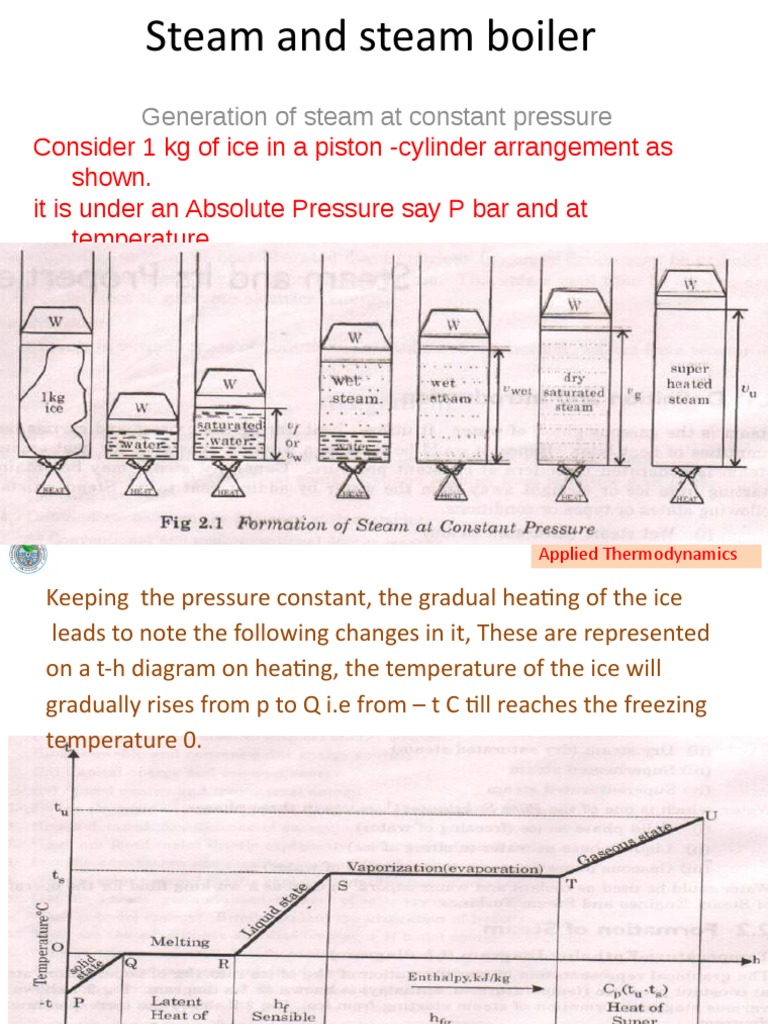 Steam and steam boiler
Generation of steam at constant pressure
Consider 1 kg of ice in a piston -cylinder arrangement as
shown.
it is under an Absolute Pressure say P bar and at
temperature
W
W
W
W
W
W
W
1kg
ice
water
saturated
water
vf
or
vw
wet
steam.
water
wet
steam
vwet
dry
saturated
steam
vg
super
heated
steam
vu
HEAT
HEAT
HEAT
HEAT
HEAT
HEAT
HEAT
Fig 2.1 Formation of Steam at Constant Pressure
Applied Thermodynamics
Keeping the pressure constant, the gradual heating of the ice
leads to note the following changes in it, These are represented
on a t-h diagram on heating, the temperature of the ice will
gradually rises from p to Q i.e from – t C till reaches the freezing
temperature 0.
t
tu
U
Gaseous state
ts
Vaporization(evaporation)
S
T
Liquid state
Temperature°C
O
Melting
solid
state
Q
R
h
Enthalpy,kJ/kg
-t
P
Latent
Heat of
hf
Sensible
hfg
Cp(tu-ts)
Heat of
Super